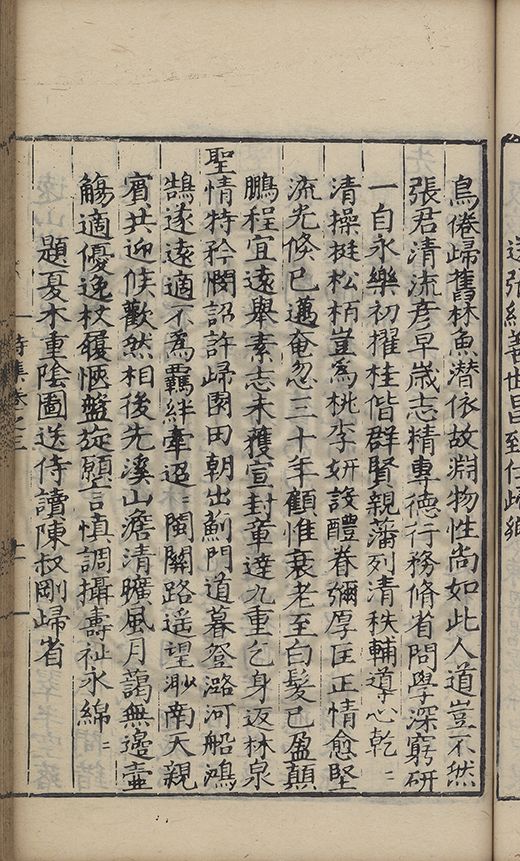 鳥倦歸舊林魚潛依故淵物性尚如此人道豈不然
張君清流彥早歲志精專德行務脩省問學深窮研
一自永樂初擢桂偕群賢親藩列清秩輔導心乾〻
清操挺松栢豈為桃李妍設醴眷彌厚匡正情愈堅
流光倏已邁奄忽三十年顧惟衰老至白髮已盈顛
鵬程宜遠舉素志未獲宣封章達九重乞身返林泉
聖情特矜憫詔許歸園田朝出薊門道暮登潞河船鴻
鵠遂遠適不為羈絆牽迢〻閩關路遥望渺南天親
賓共迎候歡然相後先溪山澹清曠風月藹無邊壷
觴適優逸杖屨愜盤旋願言慎調攝壽祉永綿〻
題夏木重陰圖送侍讀陳叔剛歸省
詩集卷之三
十一